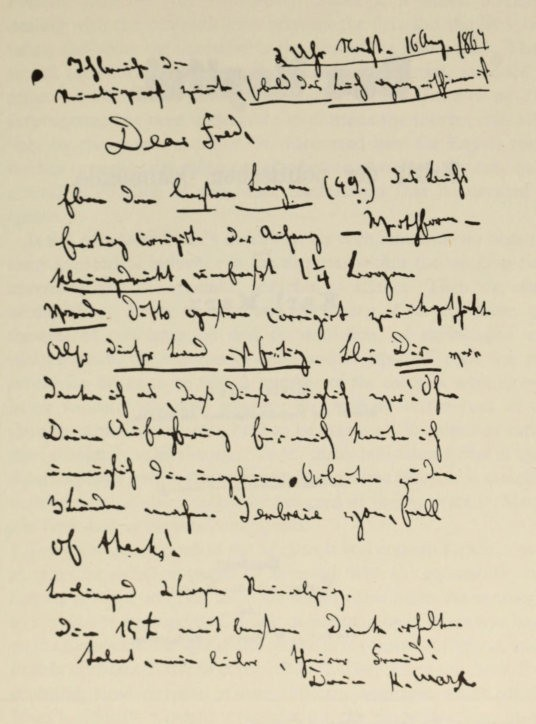 2 Uhr Nacht. 16 Aug. 1867
Ich brauche die
Reinabzüge zurück, sobald das Buch ganz erschienen ist
Dear Fred,
Eben den letzten Bogen (49.) des Buchs
fertig corrigirt. Der Anhang – Werthform –
kleingedruckt, umfaßt 1 1/4 Bogen.
Vorrede ditto gestern corrigirt zurückgeschickt.
Also dieser Band ist fertig. Blos Dir
danke ich es, daß dieß möglich war! Ohne
Deine Aufopferung für mich konnte ich
unmöglich die ungeheuren Arbeiten zu den
3 Bänden machen. I embrace you, full
of thanks!
Beiliegend 2 Bogen Reinabzug.
Die 15 £ mit bestem Dank erhalten.
Salut, mein lieber, theurer Freund!
Dein K. Marx